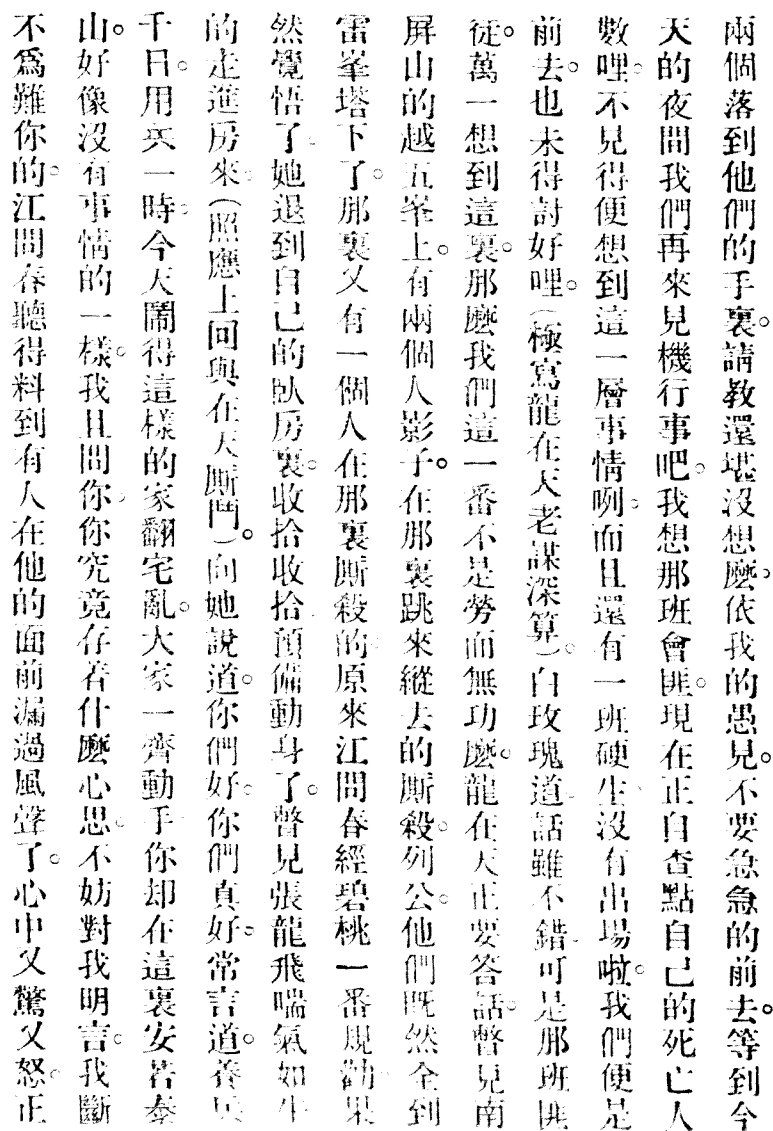 兩個落到他們的手裏。請教還堪沒想麽。依我的愚見。不要急急的前去。等到今
天的夜間我們再來見機行事吧。我想那班會匪。現在正自查點自己的死亡人
數哩。不見得便想到這一層事情咧。而且還有一班硬生沒有出場啦。我們便是
前去。也未得討好哩。(極寫龍在天老謀深算)。白玫瑰道。話雖不錯。可是那班匪
徒。萬一想到這裏。那麽我們這一番不是勞而無功麽。龍在天正要答話。瞥見南
屏山的越五峯上。有兩個人影子。在那裏跳來縱去的厮殺。列公。他們既然全到
雷峯塔下了。那裏又有一個人在那裏厮殺的。原來江問春經碧桃一番規勸。果
然覺悟了。她退到自己的臥房裏。收拾收拾。預備動身了。瞥見張龍飛喘氣如牛
的走進房來。(照應上回與在天厮鬥)。向她說道。你們好。你們真好。常言道。養兵
千日。用兵一時。今天鬧得這樣的家翻宅亂。大家一齊動手。你却在這裏安若泰
山。好像沒有事情的一樣。我且問你。你究竟存着什麽心思。不妨對我明言。我斷
不爲難你的。江問春聽得料到有人在他的面前漏過風聲了。心中又驚又怒。正